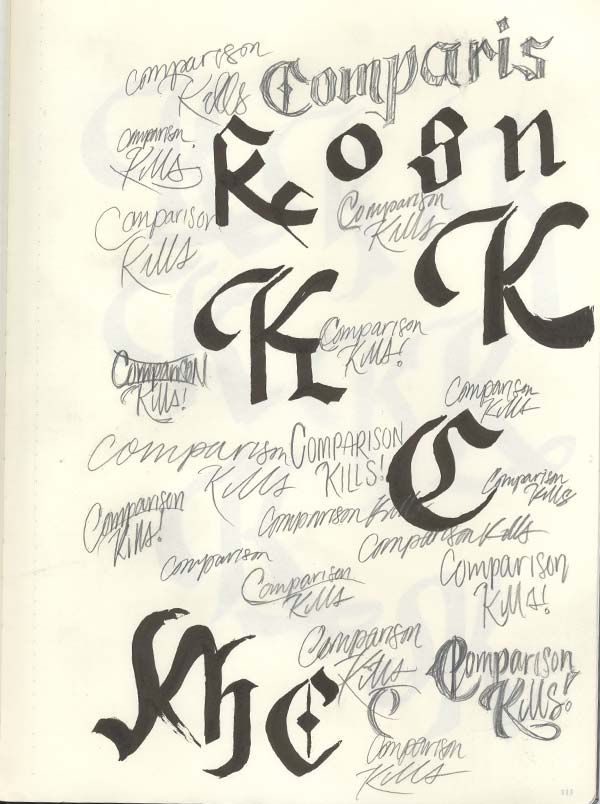 Comparison
Kills
Comparis
Comparison
Kills
K o s n
Comparison
Kills
Comparison
Kills
K
K
Comparison
Kills!
Comparison
Kills!
Comparison
Kills
Comparison
Kills
COMPARISON
KILLS!
C
Comparison
Kills
Comparison
Kills!
Comparison Kills
Comparison Kills
Comparison
Comparison
Kills
Comparison
Kills!
Comparison
Kills
Comparison
Kills!
C
C
Comparison
Kills